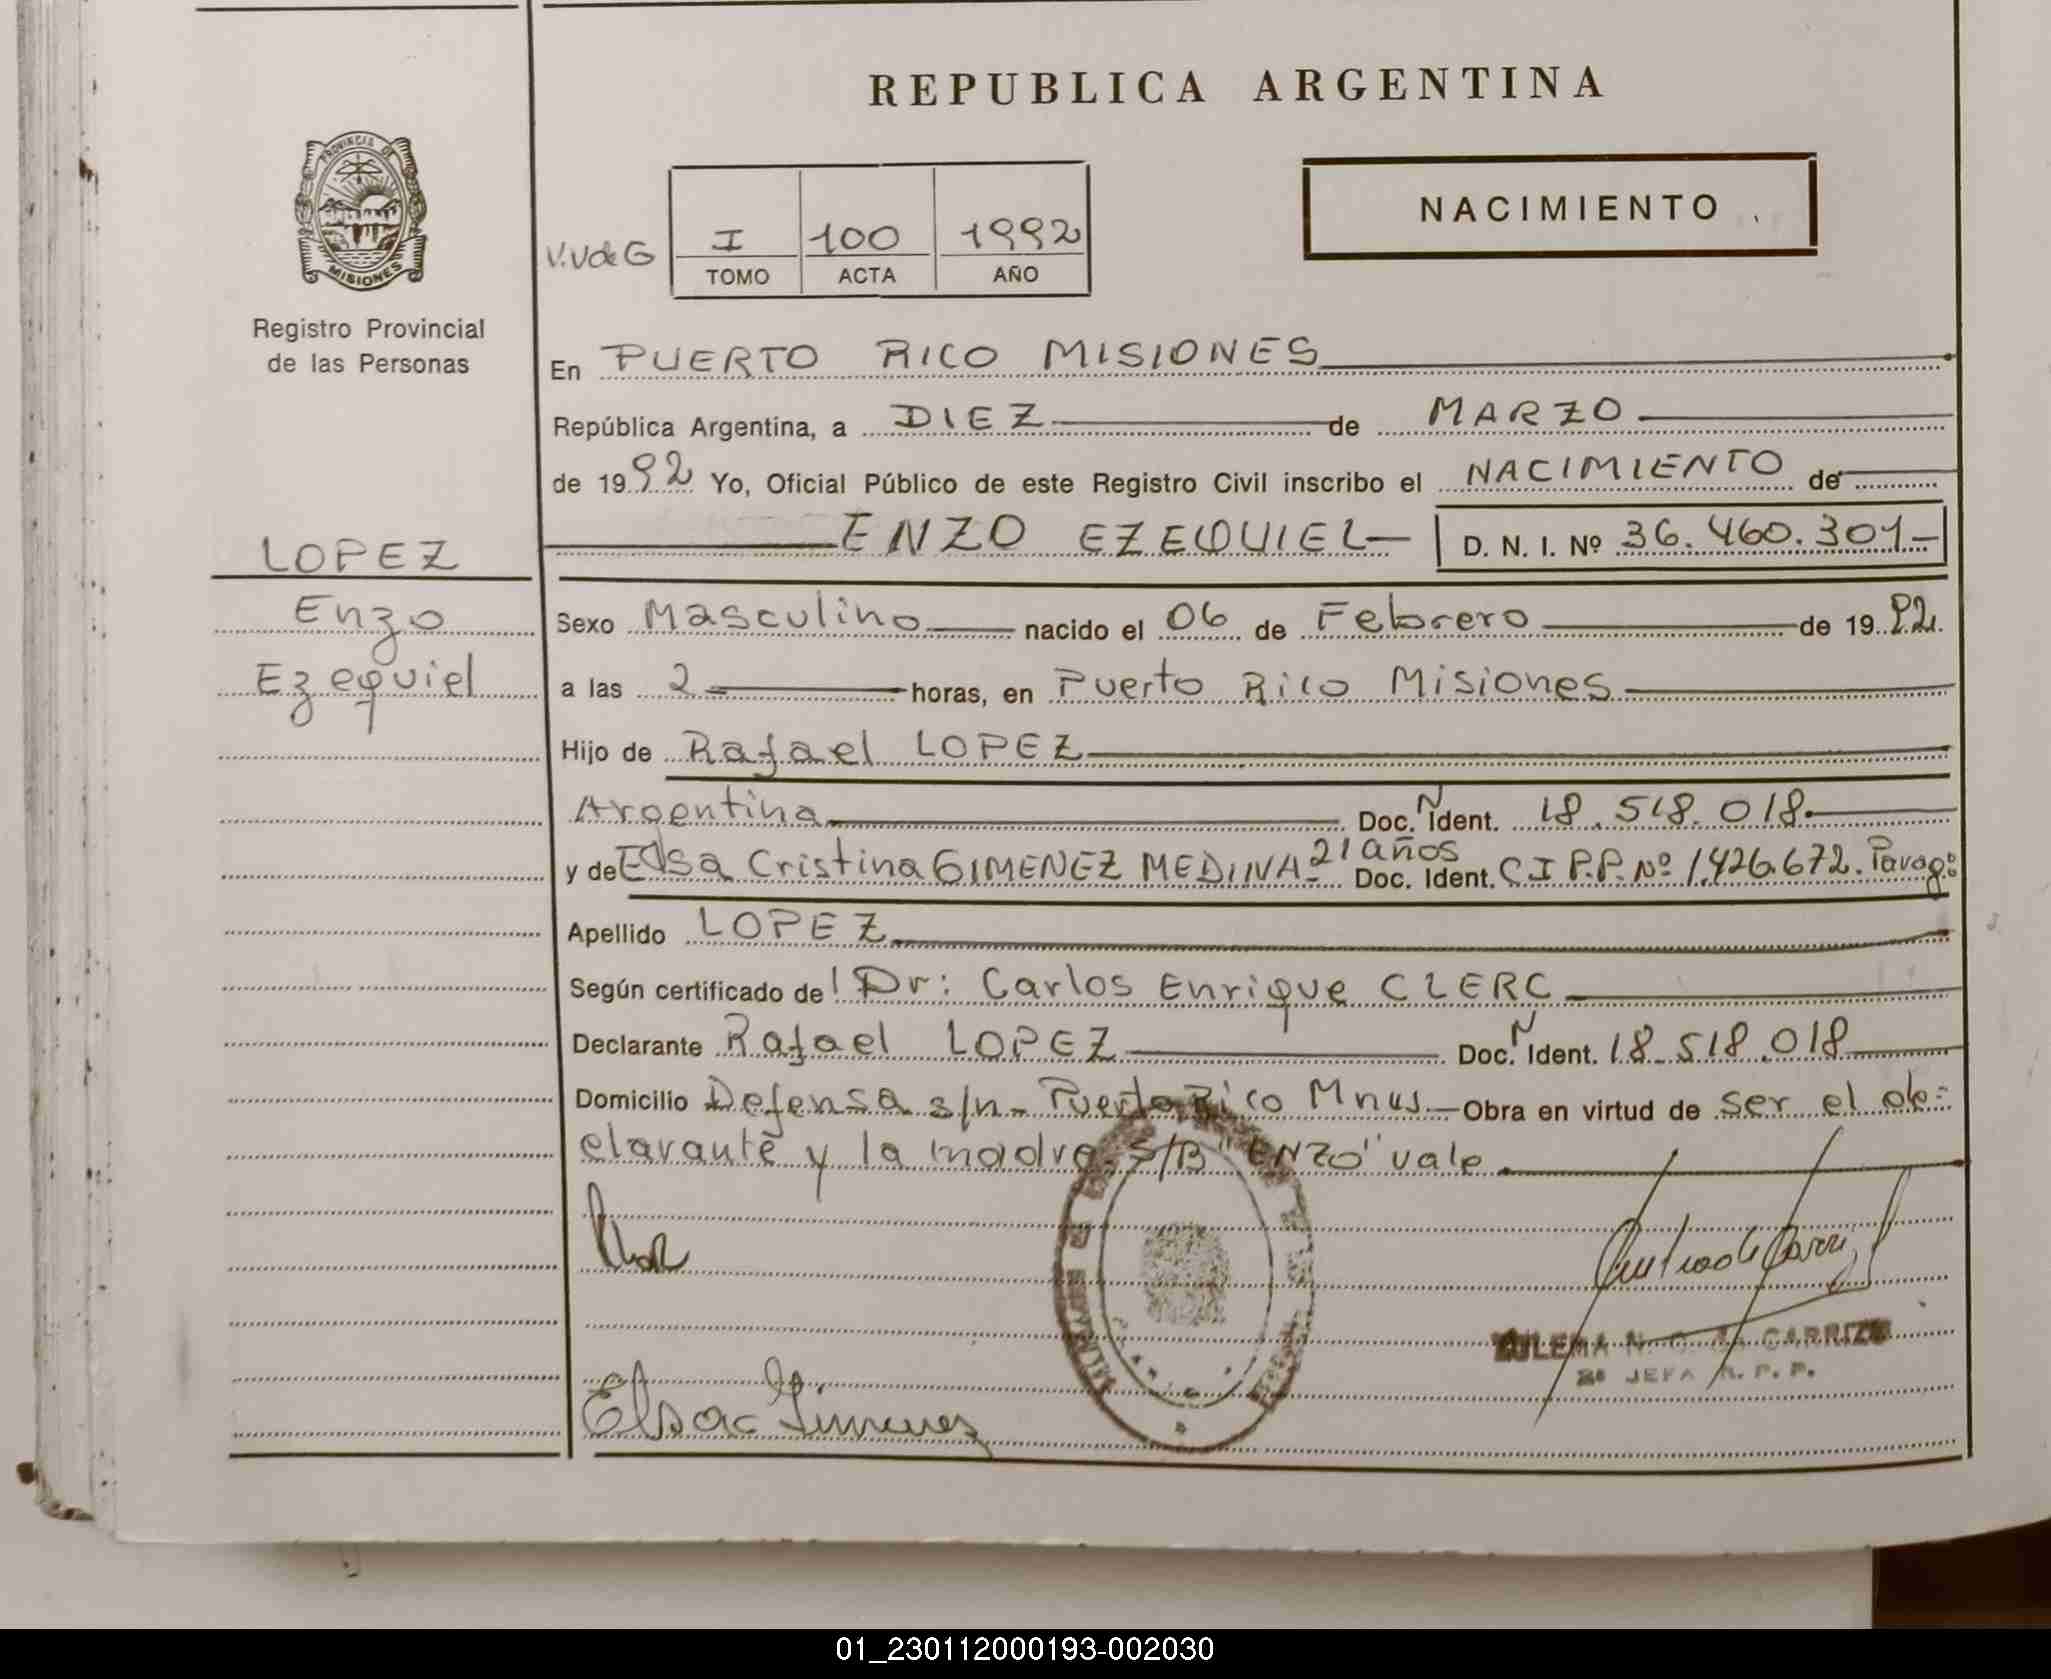 REPUBLICA ARGENTINA
PROVINCIA DE
MISIONES
Registro Provincial
de las Personas
NACIMIENTO
V.V de G
I 100 1992
TOMO ACTA AÑO
En PUERTO RICO MISIONES
República Argentina, a DIEZ de MARZO
de 1992 Yo, Oficial Público de este Registro Civil inscribo el NACIMIENTO de
ENZO EZEQUIEL D. N. I. Nº 36.460.301
LOPEZ
Enzo
Ezequiel
Sexo Masculino nacido el 06 de Febrero de 1992.
a las 2 horas, en Puerto Rico Misiones
Hijo de Rafael LOPEZ
Argentina Doc. N Ident. 18.518.018
y de Elsa Cristina GIMENEZ MEDINA 21 años Doc. Ident. C I P.P. Nº 1.426.672. Parag:
Apellido LOPEZ
Según certificado de Dr: Carlos Enrique CLERC
Declarante Rafael LOPEZ Doc. N Ident. 18.518.018
Domicilio Defensa s/n - Puerto Rico Mnes Obra en virtud de ser el de=
clarante y la madre. S/B "ENZO" vale
Elsa C Gimenez
ZULEMA N. C. de CARRIZO
2ª JEFA R. P. P.
01_230112000193-002030